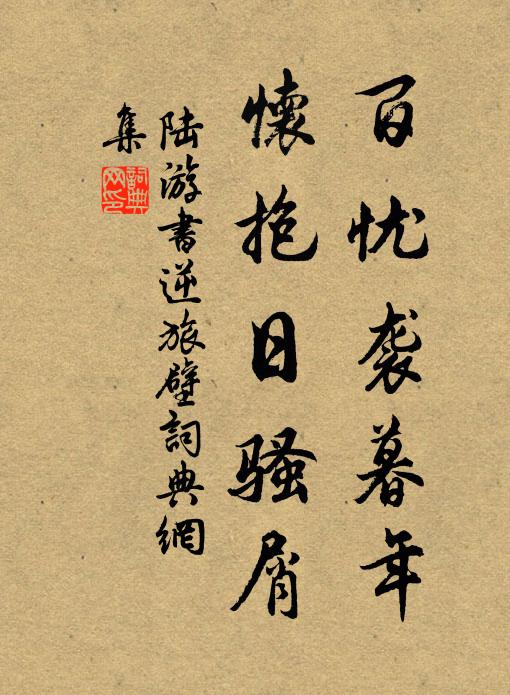 百忧袭暮年
懷抱日骚屑
陆游書逆旅壁詞典網
集
詞典网印